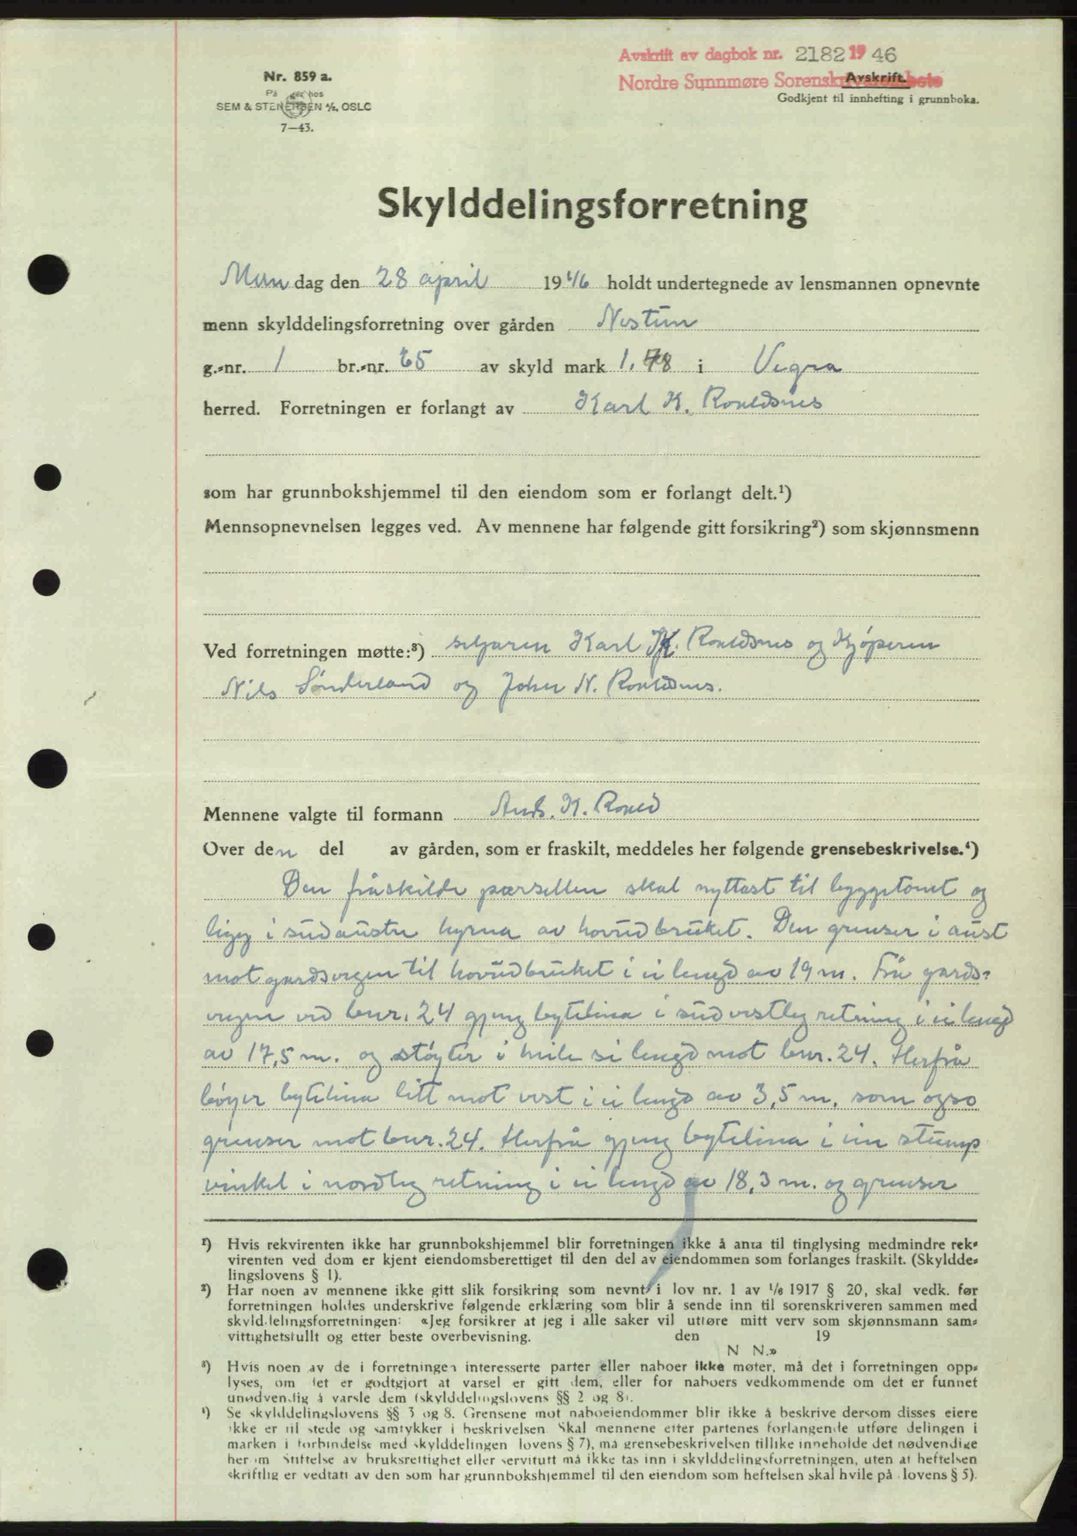 Avskrift av dagbok nr. 2182 1946
Nordre Sunnmøre Sorenskriverembete
Avskrift.
Godkjent til innhefting i grunnboka.
Nr. 859 a.
SEM & STENERSEN A/S, OSLO
7—43.
Skylddelingsforretning
Mandag den 28 april 1946 holdt undertegnede av lensmannen opnevnte
menn skylddelingsforretning over gården Nestun
g.-nr. 1 br.-nr. 65 av skyld mark 1,78 i Vigra
herred. Forretningen er forlangt av Karl K. Roaldsnes
som har grunnbokshjemmel til den eiendom som er forlangt delt.¹)
Mennsopnevnelsen legges ved. Av mennene har følgende gitt forsikring²) som skjønnsmenn
Ved forretningen møtte:³) seljaren Karl K. Roaldsnes og Kjøperen
Nils Sønderland og Johan N. Roaldsnes.
Mennene valgte til formann Ands. K. Roald
Over den del av gården, som er fraskilt, meddeles her følgende grensebeskrivelse.⁴)
Den fråskilde parsellen skal nyttast til byggetomt og
ligg i sudaustre hyrna av hovudbruket. Den grenser i aust
mot gardsvegen til hovudbruket i ei lengd av 19 m. Frå gards-
vegen ved bnr. 24 gjeng bytelina i sudvestleg retning i ei lengd
av 17,5 m. og støyter i heile si lengd mot bnr. 24. Herfrå
bøyer bytelina litt mot vest i ei lengd av 3,5 m. som også
grenser mot bnr. 24. Herfrå gjeng bytelina i ein stump
vinkel i nordleg retning i ei lengd av 18,3 m. og grenser
¹) Hvis rekvirenten ikke har grunnbokshjemmel blir forretningen ikke å anta til tinglysing medmindre rek-
virenten ved dom er kjent eiendomsberettiget til den del av eiendommen som forlanges fraskilt. (Skyldde-
lingslovens § 1).
²) Har noen av mennene ikke gitt slik forsikring som nevnt i lov nr. 1 av 1/6 1917 § 20, skal vedk. før
forretningen holdes underskrive følgende erklæring som blir å sende inn til sorenskriveren sammen med
skylddelingsforretningen: «Jeg forsikrer at jeg i alle saker vil utføre mitt verv som skjønnsmann sam-
vittighetsfullt og etter beste overbevisning. den 19
N N.»
³) Hvis noen av de i forretningen interesserte parter eller naboer ikke møter, må det i forretningen opp-
lyses, om det er godtgjort at varsel er gitt dem, eller for naboers vedkommende om det er funnet
unødvendig å varsle dem (skylddelingslovens §§ 2 og 8).
⁴) Se skylddelingslovens §§ 3 og 8. Grensene mot naboeiendommer blir ikke å beskrive dersom disses eiere
ikke er til stede og samtykker i beskrivelsen. Skal mennene etter partenes forlangende utføre delingen i
marken i forbindelse med skylddelingen (lovens § 7), må grensebeskrivelsen tillike inneholde det nødvendige
her om. Stiftelse av bruksrettighet eller servitutt må ikke tas inn i skylddelingsforretningen, uten at heftelsen
skriftlig er vedtatt av den som har grunnbokshjemmel til den eiendom som heftelsen skal hvile på (lovens § 5).